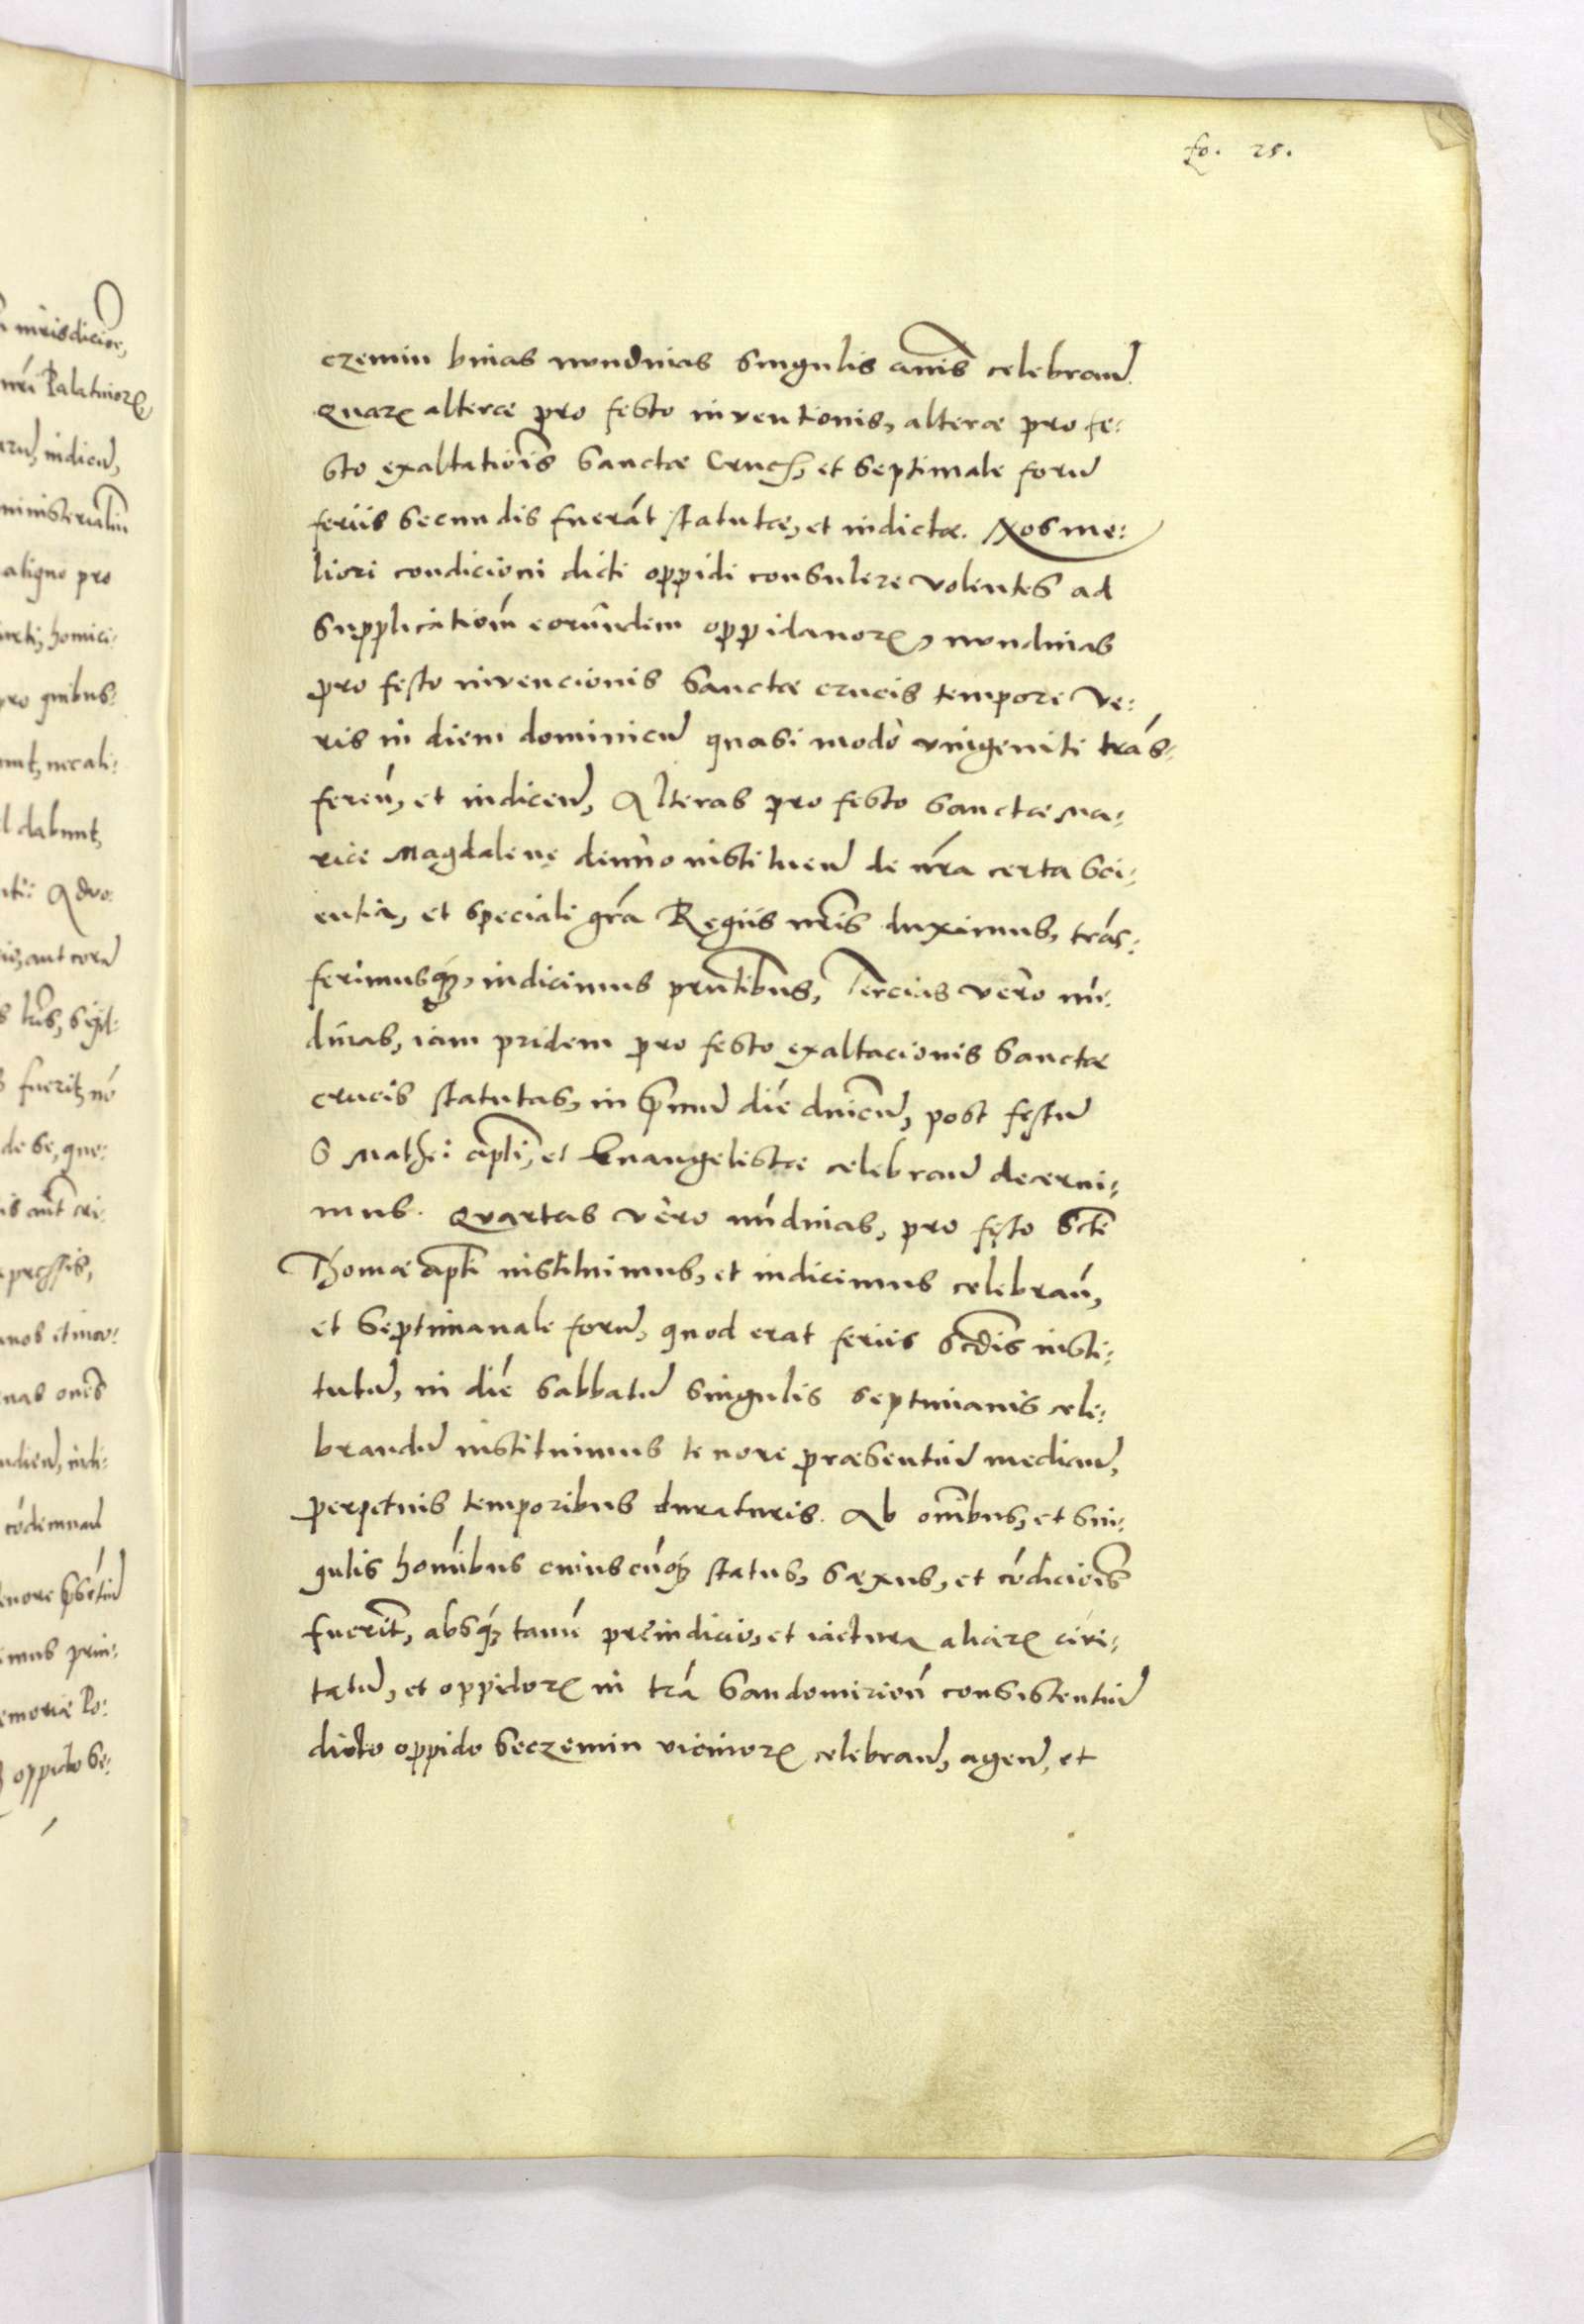 fo. 25.
czemin binas nundinas singulis annis celebrand
quarꝝ alterae pro festo inventionis, alterae pro fe:
sto exaltationis Sanctae Crucis, et septimale forū
feriis secundis fuerāt statutae, et indictae. Nos me:
liori condicioni dicti oppidi consulere volentes ad
supplicationē eorundem oppidanorꝝ, nundinas
pro festo invencionis Sanctae crucis tempore ve:
ris in diem dominicū quasi modo unigeniti trās:
ferēn, et indicend, Alteras pro festo Sanctae Ma:
riae Magdalenę denuo instituend de nrā certa sci:
entia, et speciali grā Regiis nris duximus, trās:
ferimusqȝ, indicimus prntibus, Tercias vero nū:
dinas, iam pridem pro festo exaltacionis Sanctae
crucis statutas, in primū diē dnicū, post festū
S Mathei apli, et Evangelistae celebrand decerni:
mus. Quartas vero nūdinas, pro festo Scti
Thomae apli instituimus, et indicimus celebrān,
et Septimanale forū, quod erat feriis scdis insti:
tutū, in diē Sabbatū singulis septimanis cele:
brandū instituimus tenore praesentiū mediand,
perpetuis temporibus duraturis. Ab omībus, et sin:
gulis homībus cuiuscūqȝ status, saexus, et cōdicionis
fuerint, absqȝ tamē preiudicio, et iactura aliarꝝ civi:
tatū, et oppidorꝝ in trā Sandomiriēn consistentiū
dicto oppido Seczemin vicinorꝝ celebrand, agend, et